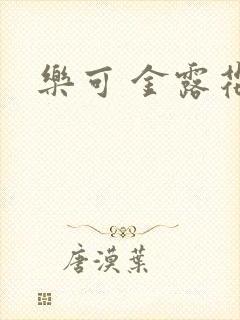 樂可 金露花
唐漠葉